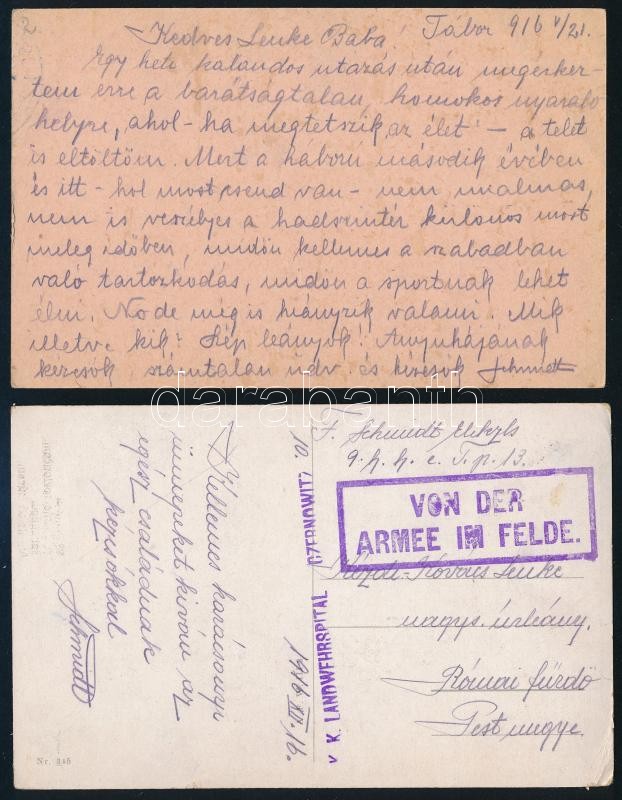 Kedves Lenke Baba! Tábor 916 V/21.
Egy heti kalandos utazás után megérkez-
tem erre a barátságtalan, homokos nyaraló
helyre, ahol - ha megtetszik az élet - a telet
is eltöltöm. Mert a háború második évében
és itt - hol most csend van - nem unalmas,
nem is veszélyes a hadszintér különös most
meleg időben, midőn kellemes a szabadban
való tartozkodás, midőn a sportnak lehet
élni. No de még is hiányzik valami. Mik
illetve kik? Szép leányok!
kézcsók számtalan üdv. és kézcsók Schmidt
darabanth
Kellemes karácsonyi
ünnepeket kiván az
egész családnak
kézcsókkal
Schmidt
1916 XII. 16.
Nr. 345
K. K. LANDWEHRSPITAL CZERNOWITZ
10.
F. Schmidt
VON DER
ARMEE IM FELDE.
Lenke
nagys. úrleány.
Római fürdő
Pest megye.